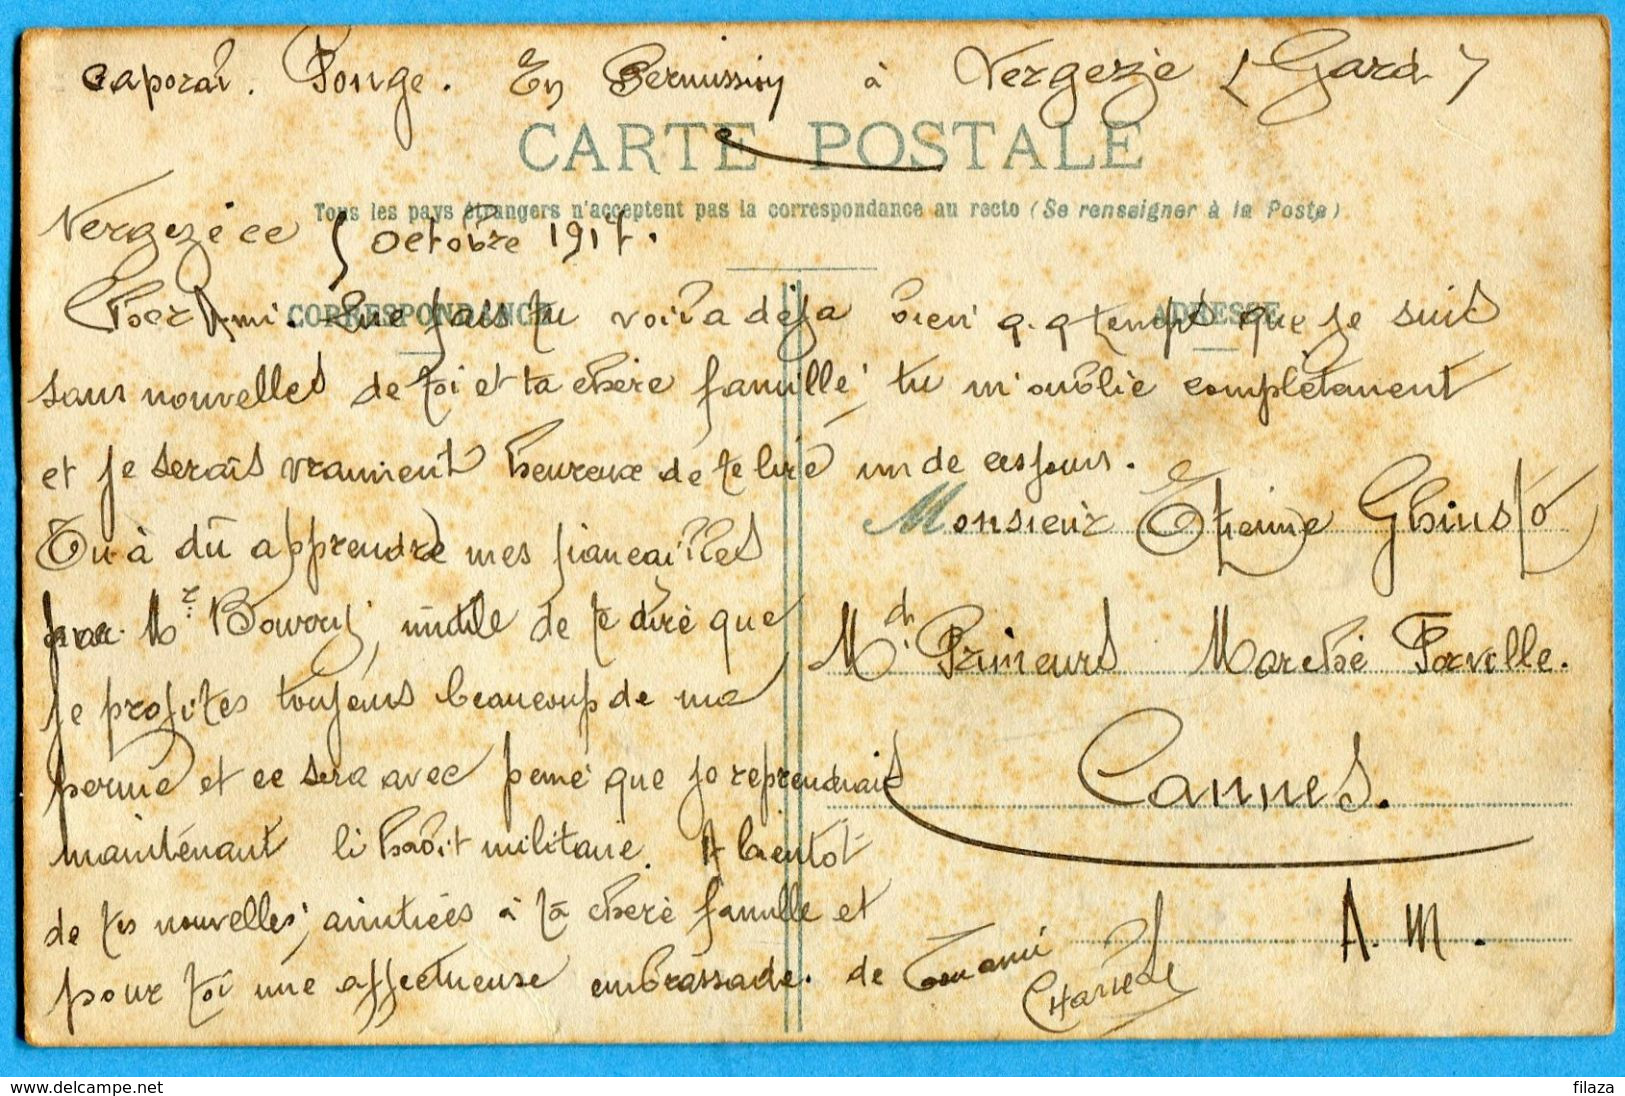 caporal. Pouge. En Permission à Vergezè (Gard)
CARTE POSTALE
Tous les pays étrangers n'acceptent pas la correspondance au recto (Se renseigner à la Poste)
Vergezè ce 5 octobre 1917.
CORRESPONDANCE
ADRESSE
Cher Ami. Que fais tu voila déja bien q.q temps que je suis
sans nouvelles de toi et ta chère famille, tu m'oublie complètement
et je serais vraiment heureux de te lire un de ces jours.
Tu à dû apprendre mes fiancailles
avec Mr, inutile de te dire que
je profites toujours beaucoup de ma
perme et ce sera avec peine que je reprendrais
maintenant l'habit militaire. A bientôt
de tes nouvelles, amitiées à ta chère famille et
pour toi une affectueuse embrassade. de ton ami
Monsieur Etienne Ghiusto
Md. Primeurs Marché Forville.
Cannes.
A. M.
www.delcampe.net
filaza